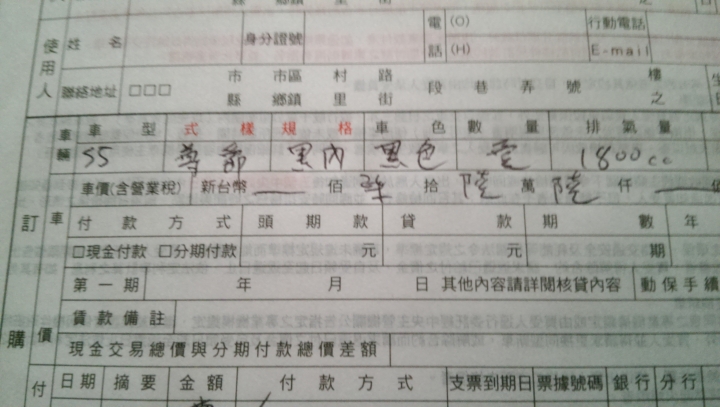 縣 鄉鎮 里 街 之
使用人 姓名 身分證號 電話 (O) (H) 行動電話 E-mail
聯絡地址 □□□ 市縣 市區鄉鎮 村里 路街 段 巷 弄 號 樓之
車輛 車型 式樣 規格 車色 數量 排氣量
S5 尊爵 黑內 黑色 壹 1800cc
車價(含營業稅) 新台幣 佰 拾 陸 萬 陸 仟
訂購 車價 付款方式 頭期款 貸款 期數 年
□現金付款 □分期付款 元 元 期
第一期 年 月 日 其他內容請詳閱核貸內容 動保手續
貸款備註
現金交易總價與分期付款總價差額
付 日期 摘要 金額 付款方式 支票到期日 票據號碼 銀行 分行